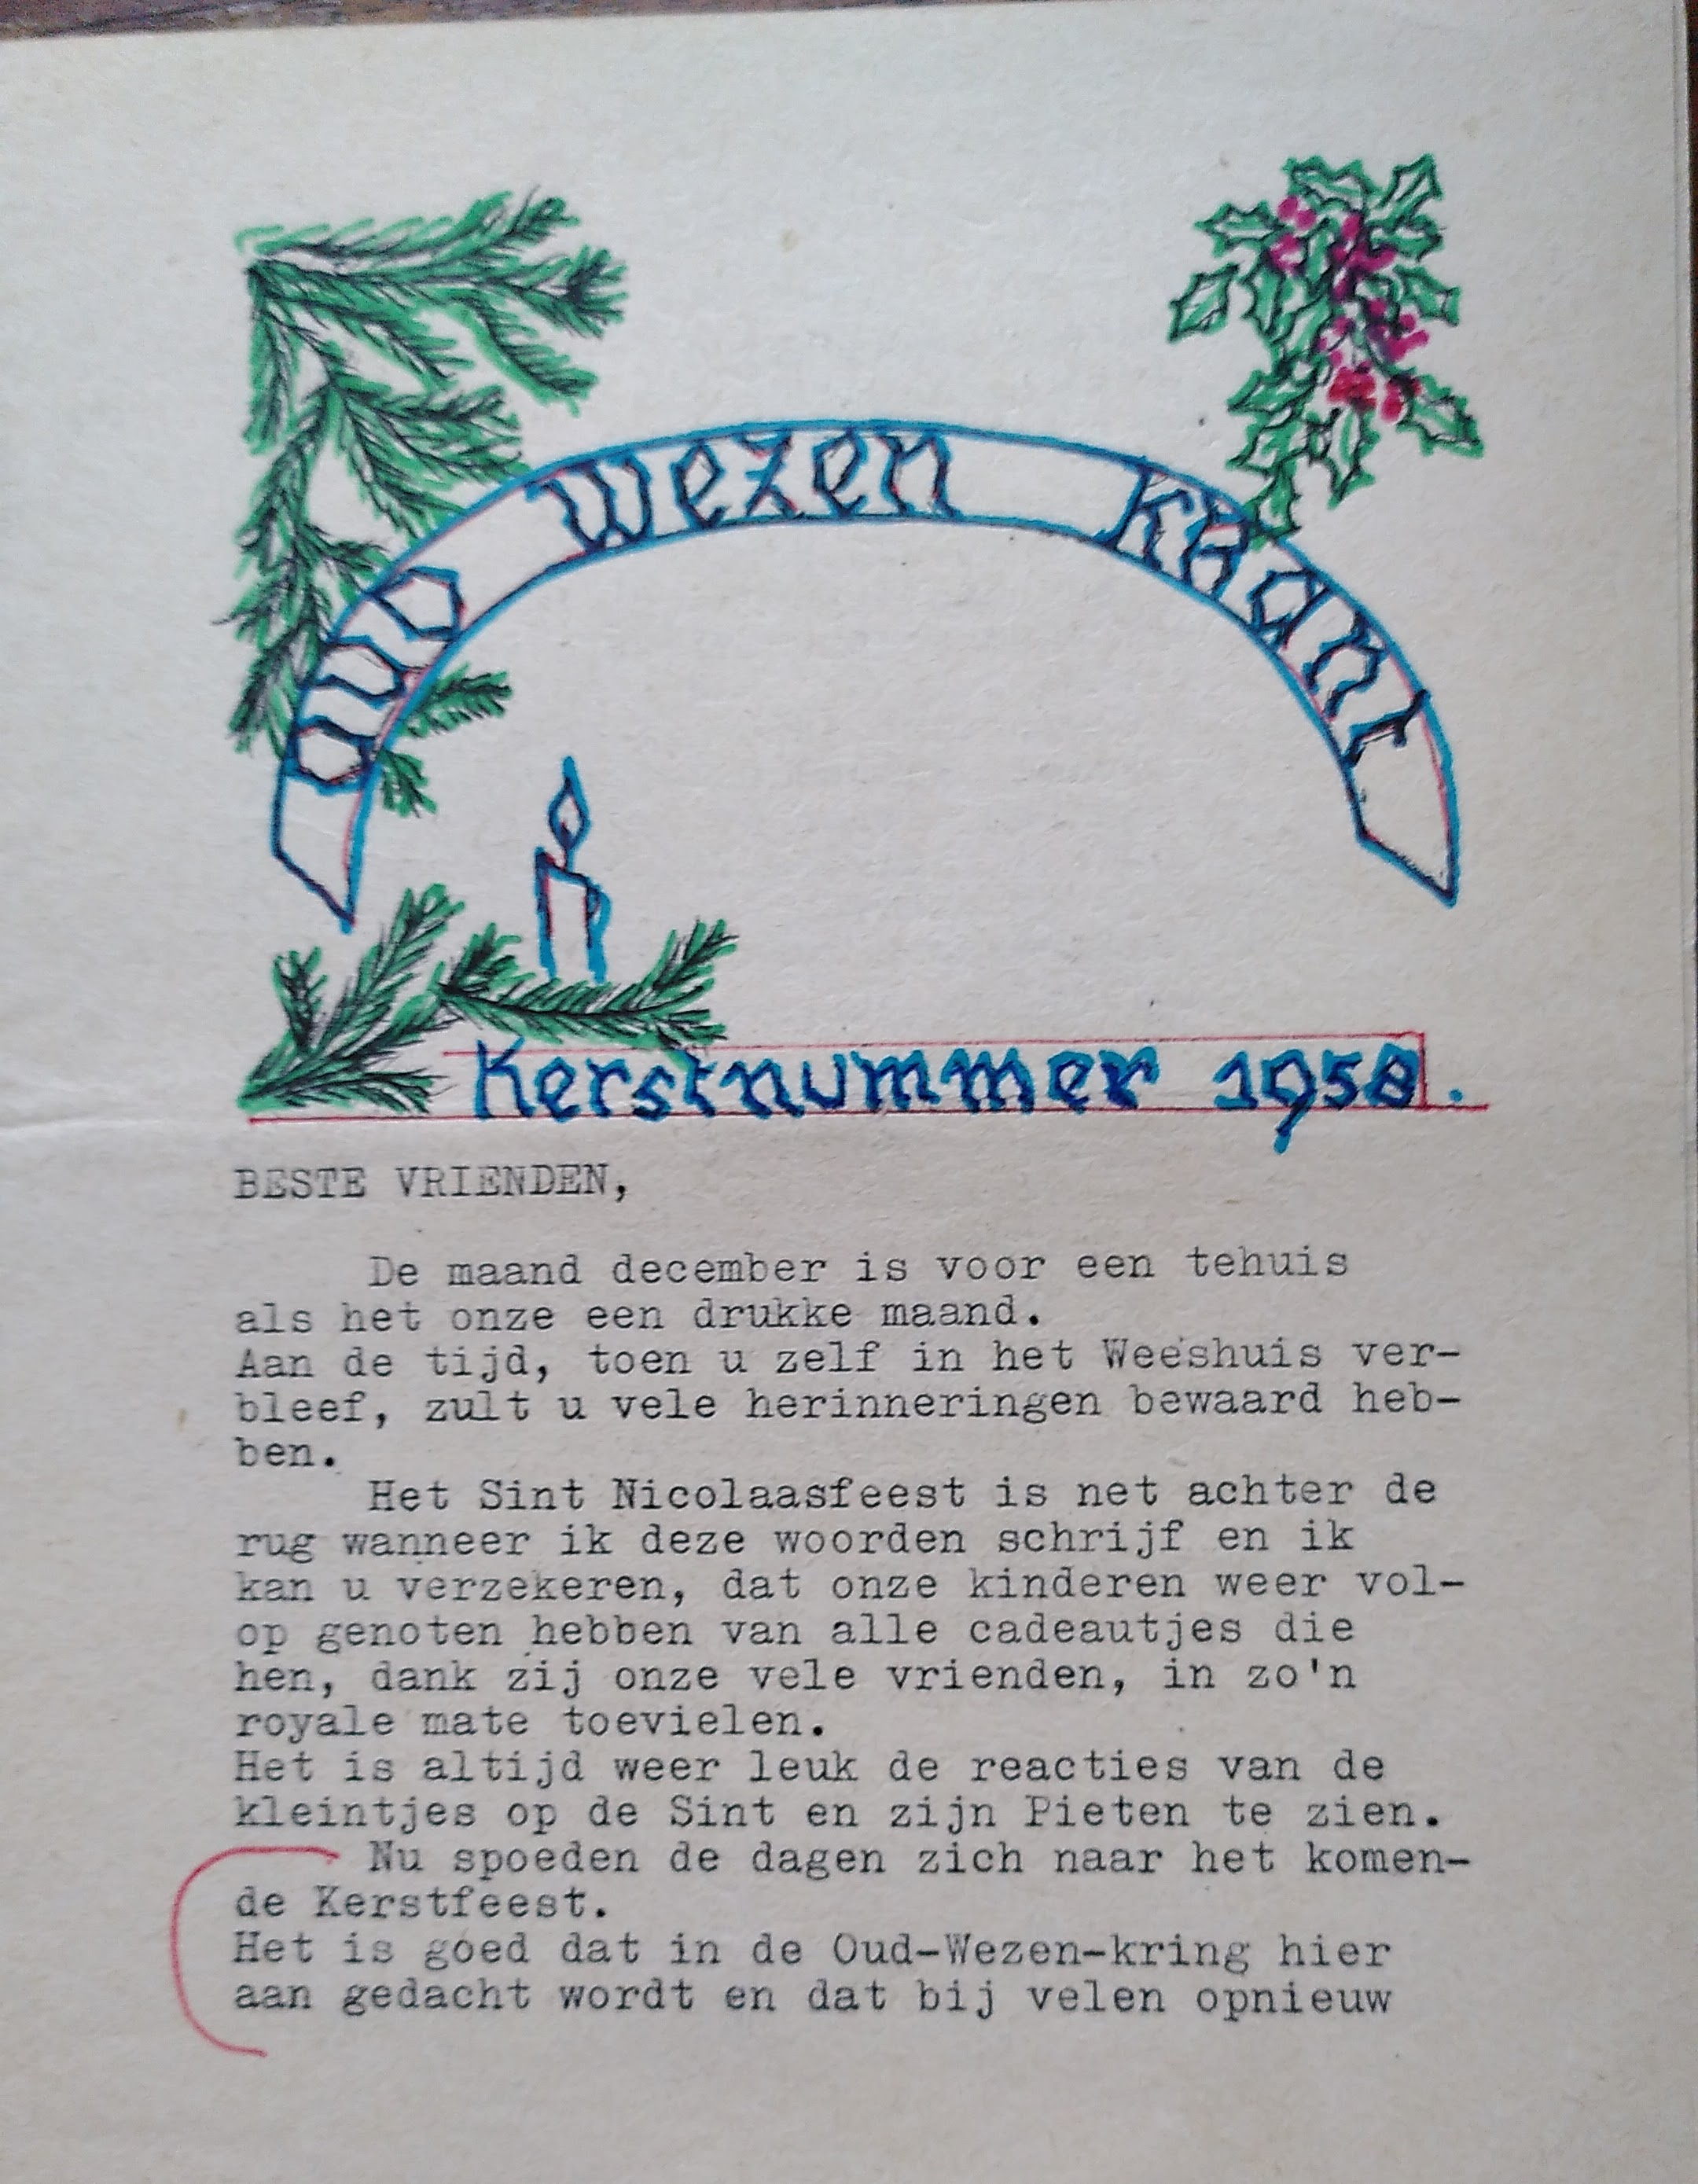 oud wezen krant
Kerstnummer 1958.
BESTE VRIENDEN,
De maand december is voor een tehuis
als het onze een drukke maand.
Aan de tijd, toen u zelf in het Weeshuis ver-
bleef, zult u vele herinneringen bewaard heb-
ben.
Het Sint Nicolaasfeest is net achter de
rug wanneer ik deze woorden schrijf en ik
kan u verzekeren, dat onze kinderen weer vol-
op genoten hebben van alle cadeautjes die
hen, dank zij onze vele vrienden, in zo'n
royale mate toevielen.
Het is altijd weer leuk de reacties van de
kleintjes op de Sint en zijn Pieten te zien.
Nu spoeden de dagen zich naar het komen-
de Kerstfeest.
Het is goed dat in de Oud-Wezen-kring hier
aan gedacht wordt en dat bij velen opnieuw